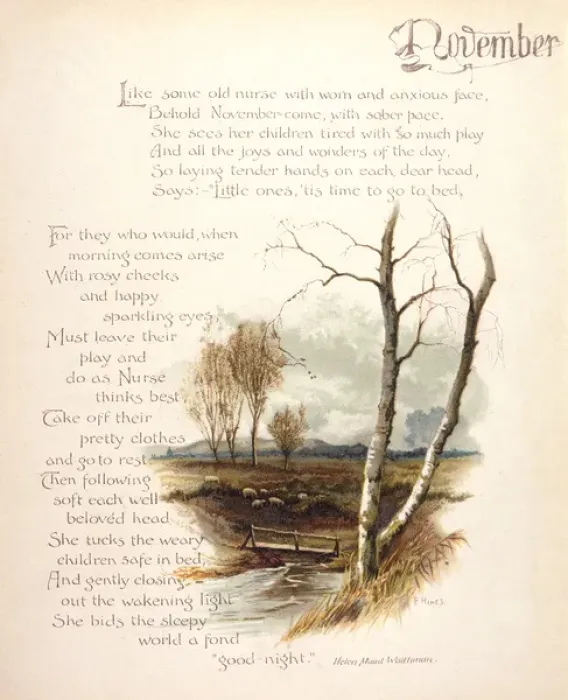 November
Like some old nurse with worn and anxious face,
Behold November come, with sober pace.
She sees her children tired with so much play
And all the joys and wonders of the day,
So laying tender hands on each dear head,
Says:-"Little ones, 'tis time to go to bed,
For they who would, when
morning comes arise
With rosy cheeks
and happy
sparkling eyes,
Must leave their
play and
do as Nurse
thinks best
Take off their
pretty clothes
and go to rest.
Then following
soft each well
belovéd head
She tucks the weary
children safe in bed,
And gently closing
out the wakening light
She bids the sleepy
world a fond
"good-night."
F Hines
Helen Maint